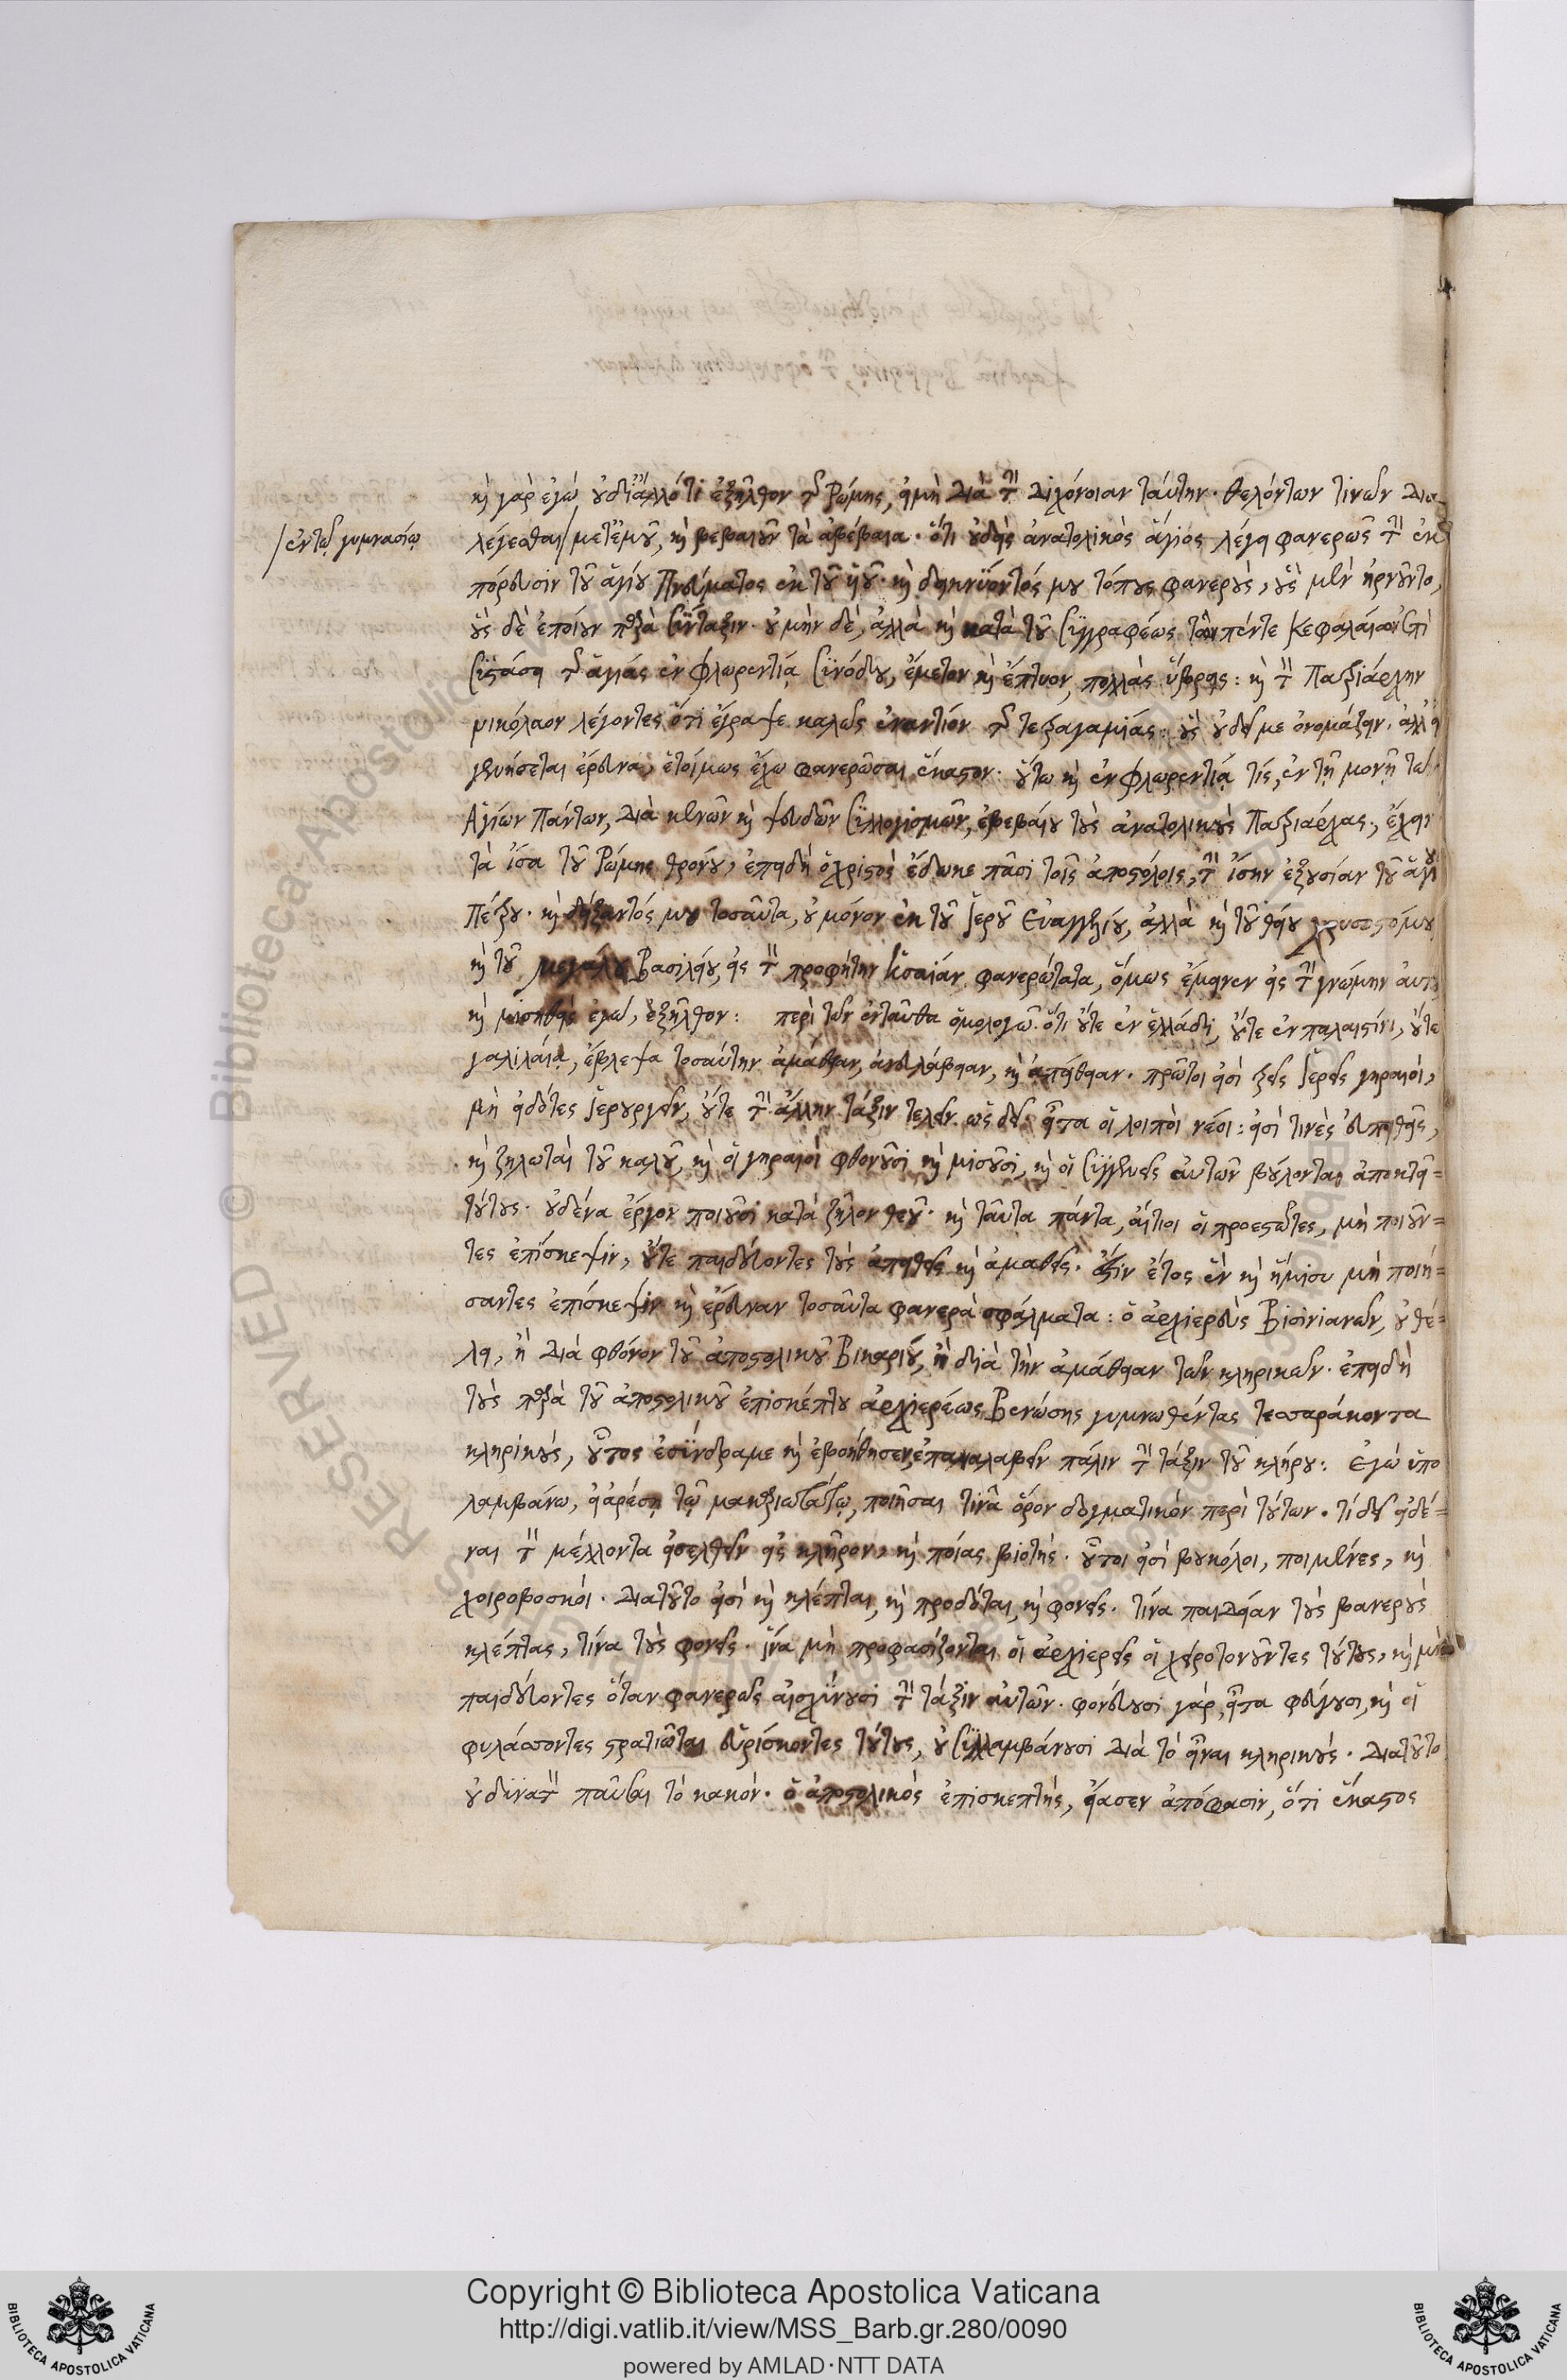 καὶ γὰρ ἐγώ οὐδι' ἄλλό τι ἐξῆλθον τῆς Ρώμης, εἰμὴ διὰ τὴν διχόνοιαν ταύτην. θελόντων τινῶν δια
/ἐντῷ γυμνασίῳ
λέγεσθαι/μετ' ἐμοῦ, καὶ βεβαιοῦν τὰ ἀβέβαια. ὅτι οὐδεὶς ἀνατολικὸς ἅγιός λέγει φανερῶς τὴν ἐκ
πόρευσιν τοῦ ἁγίου Πνεύματος ἐκ τοῦ ὑιοῦ. καὶ δεικνύοντός μου τόπους φανεροὺς, οὓς μὲν ἠρνοῦντο,
οὓς δὲ ἐποίουν παρὰ σύνταξιν. οὐ μὴν δὲ, ἀλλὰ καὶ κατὰ τοῦ συγγραφέως τῶν πέντε κεφαλαίων ἐπὶ
συστάσει τῆς ἁγίας ἐν φλωρεντίᾳ συνόδου, ἔμετον καὶ ἔπτυον, πολλὰς ὕβρεις: καὶ τὸν Πατριάρχην
νικόλαον λέγοντες ὅτι ἔγραψε καλῶς ἐναντίον τῆς τετραγαμίας: οὓς οὐδεῖ με ὀνομάζειν. ἀλλ' εἰ
γενήσεται ἔρευνα, ἑτοίμως ἔχω φανερῶσαι ἕκαστον. οὕτω καὶ ἐν φλωρεντίᾳ τίς, ἐν τῇ μονῇ τῶν
Ἁγίων Πάντων, διὰ κενῶν καὶ ψευδῶν συλλογισμῶν, ἐβεβαίου τοὺς ἀνατολικοὺς Πατριάρχας, ἔχειν
τὰ ἴσα τοῦ Ρώμης θρόνου, ἐπειδὴ ὁ χριστὸς ἔδωκε πᾶσι τοῖς ἀποστόλοις, τὴν ἴσην ἐξουσίαν τοῦ ἁγίου
Πέτρου. καὶ δείξαντός μου τοσαῦτα, οὐ μόνον ἐκ τοῦ ἱεροῦ Εὐαγγελίου, ἀλλὰ καὶ τοῦ θείου χρυσοστόμου
καὶ τοῦ μεγάλου Βασιλείου, εἰς τὸν προφήτην Ἡσαΐαν φανερώτατα, ὅμως ἔμεινεν εἰς τὴν γνώμην αὐτοῦ,
καὶ μισηθεὶς ἐγώ, ἐξῆλθον: περὶ τῶν ἐνταῦθα ὁμολογῶ. ὅτι οὔτε ἐν ἑλλάδι, οὔτε ἐν παλαιστίνι, οὔτε
γαλιλαίᾳ, ἔβλεψα τοσαύτην ἀμάθειαν, ἀνευλάβειαν, καὶ ἀπείθειαν. πρῶτοι εἰσὶ τρεῖς ἱερεῖς γηραιοί,
μὴ εἰδότες ἱερουργεῖν, οὔτε τὴν ἄλλην τάξιν τελεῖν ὡς δεῖ. εἶτα οἱ λοιποὶ νέοι: εἰσί τινὲς εὐπειθεῖς,
καὶ ζηλωταὶ τοῦ καλοῦ, καὶ οἱ γηραιοὶ φθονοῦσι καὶ μισοῦσι, καὶ οἱ συγγενεῖς αὐτῶν βούλονται ἀποκτεῖ=
τούτους. οὐδένα ἔργον ποιοῦσι κατὰ ζῆλον θεοῦ. καὶ ταῦτα πάντα, αἴτιοι οἱ προεστῶτες, μὴ ποιοῦν=
τες ἐπίσκεψιν, οὔτε παιδεύοντες τοὺς ἀπειθεῖς καὶ ἀμαθεῖς. ἔτος ἓν καὶ ἥμισυ μὴ ποιή=
σαντες ἐπίσκεψιν καὶ ἔρευναν τοσαῦτα φανερὰ σφάλματα: ὁ ἀρχιερεὺς Βισινιανῶν, οὐ θέ=
λει, ἢ διὰ φθόνον τοῦ ἀποστολικοῦ Βικαρίου, ἢ διὰ τὴν ἀμάθειαν τῶν κληρικῶν. ἐπειδὴ
τοὺς παρὰ τοῦ ἀποστολικοῦ ἐπισκέπτου ἀρχιερέως Βενώσης γυμνωθέντας τεσσαράκοντα
κληρικούς, οὗτος ἐσύνδραμε καὶ ἐβοήθησεν, ἐπαναλαβεῖν πάλιν τὴν τάξιν τοῦ κλήρου: Ἐγώ ὑπο
λαμβάνω, εἰ ἀρέσῃ τῷ μακαριωτάτῳ, ποιῆσαι τινὰ ὅρον δογματικὸν περὶ τούτων. τί δεῖ εἰδέ=
ναι τὸν μέλλοντα εἰσελθεῖν εἰς κλῆρον, καὶ ποίας βιοτῆς. οὗτοι εἰσὶ βουκόλοι, ποιμένες, καὶ
χοιροβοσκοί. διατοῦτο εἰσὶ καὶ κλέπται, καὶ προδόται, καὶ φονεῖς. τίνα παιδείαν τοὺς φανεροὺς
κλέπτας, τίνα τοὺς φονεῖς. ἵνα μὴ προφασίζονται οἱ ἀρχιερεῖς οἱ χειροτονοῦντες τούτους, καὶ μὴ
παιδεύοντες ὅταν φανερῶς αἰσχύνουσι τὴν τάξιν αὐτῶν. φονεύουσι γάρ, εἶτα φεύγουσι, καὶ οἱ
φυλάσσοντες στρατιῶται εὑρίσκοντες τούτους, οὐ συλλαμβάνουσι διὰ τὸ εἶναι κληρικούς. διατοῦτο
οὐ δύναται παῦσαι τὸ κακόν. ὁ ἀποστολικὸς ἐπισκεπτὴς, εἴασεν ἀπόφασιν, ὅτι ἕκαστος
Copyright © Biblioteca Apostolica Vaticana
http://digi.vatlib.it/view/MSS_Barb.gr.280/0090
powered by AMLAD·NTT DATA
BIBLIOTECA APOSTOLICA VATICANA
BIBLIOTECA APOSTOLICA VATICANA